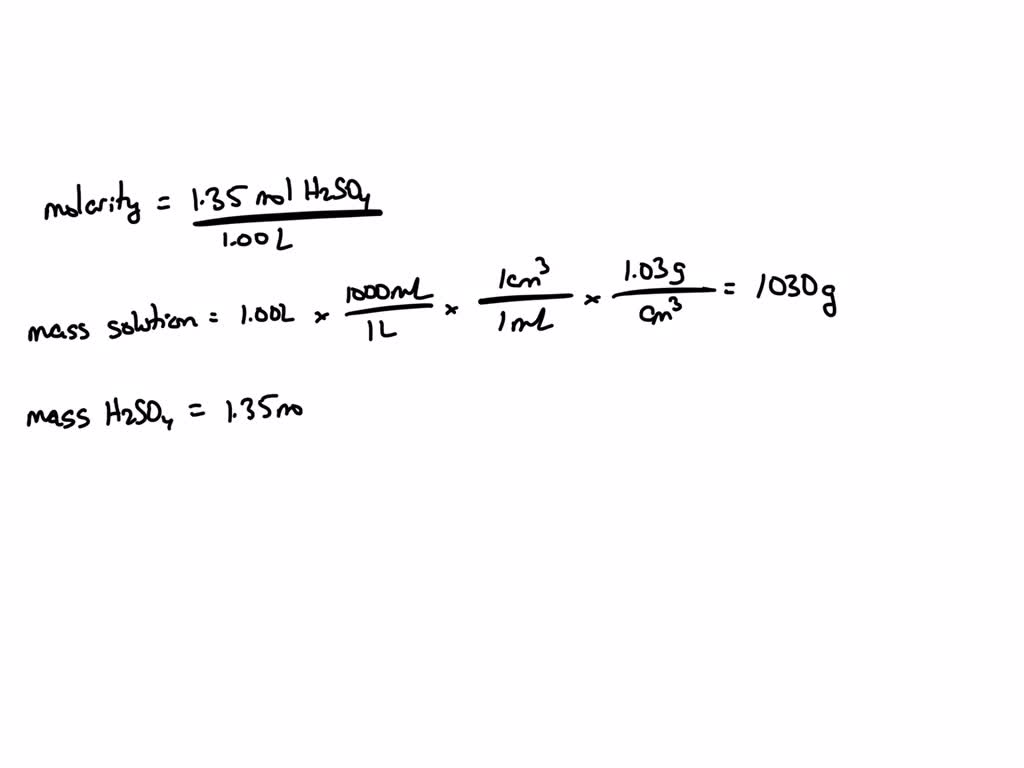 molarity = 1.35 mol H₂SO₄ / 1.00 L
mass solution = 1.00L × 1000mL / 1L × 1cm³ / 1mL × 1.03g / cm³ = 1030 g
mass H₂SO₄ = 1.35 mo